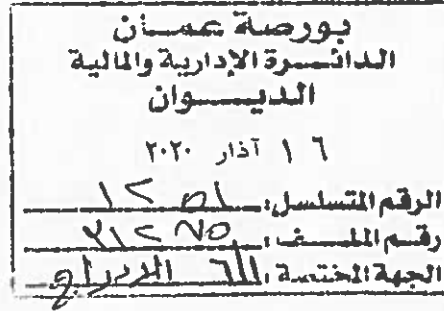 بورصة عمان
الدائرة الإدارية والمالية
الديوان
١٦ آذار ٢٠٢٠
الرقم المتسلسل:
رقم الملف:
الجهة المختصة: الادراج